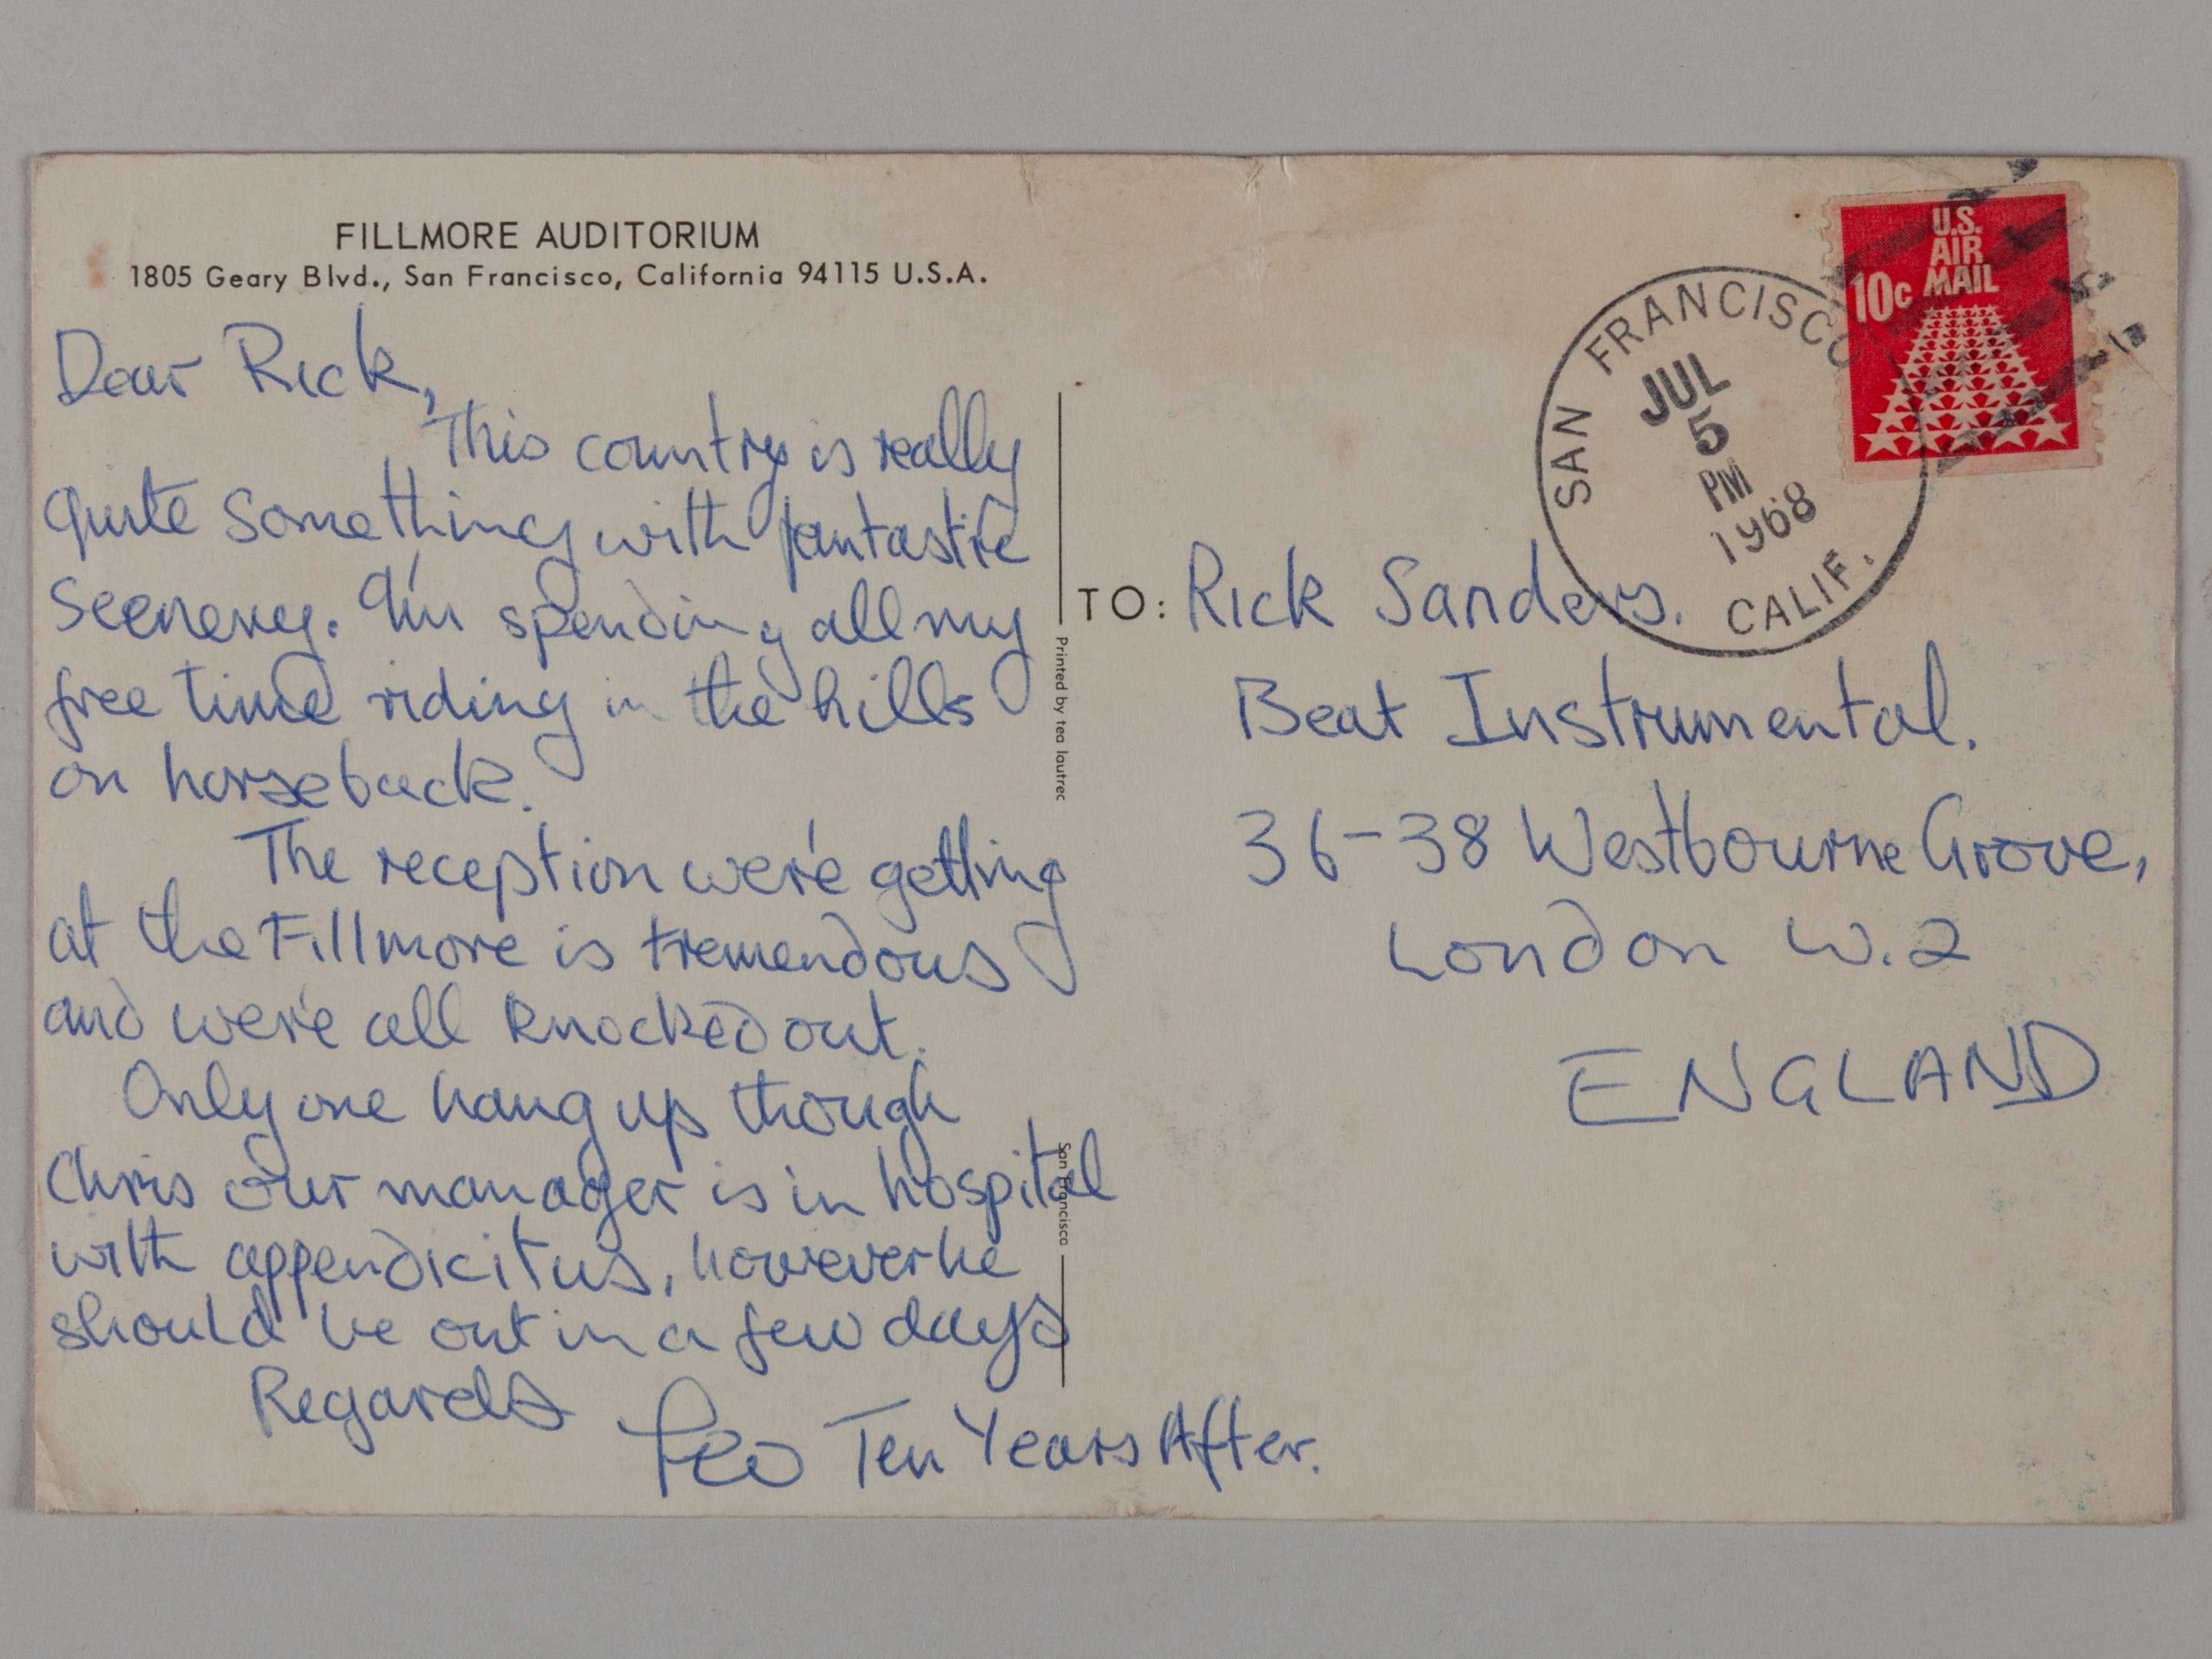 FILLMORE AUDITORIUM
1805 Geary Blvd., San Francisco, California 94115 U.S.A.
Dear Rick,
This country is really
quite something with fantastic
scenerey. I'm spending all my
free time riding in the hills
on horseback.
The reception we're getting
at the Fillmore is tremendous
and we're all knocked out.
Only one hang up though
Chris our manager is in hospital
with appendicitus, however he
should be out in a few days
Regards
Leo Ten Years After.
Printed by tea lautrec
San Francisco
U.S.
AIR
MAIL
10c
SAN FRANCISCO
JUL
5
PM
1968
CALIF.
TO: Rick Sanders.
Beat Instrumental.
36-38 Westbourne Grove,
London W.2
ENGLAND